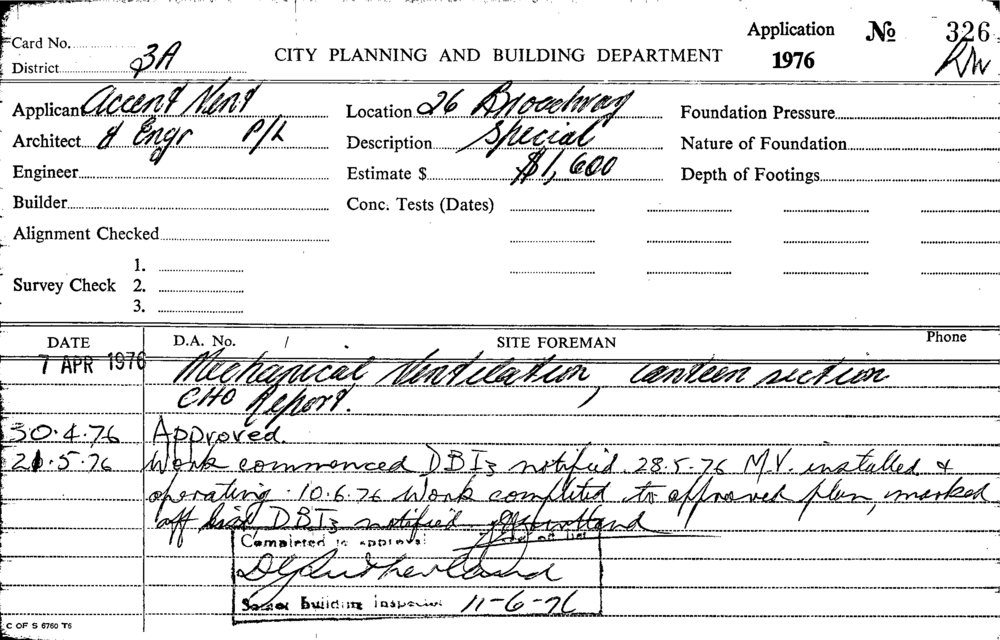 Application № 326
Card No.
District 3A CITY PLANNING AND BUILDING DEPARTMENT 1976 RW
Applicant Accent Vent Location 26 Broadway Foundation Pressure
Architect & Engr P/L Description Special Nature of Foundation
Engineer Estimate $ $1,600 Depth of Footings
Builder Conc. Tests (Dates)
Alignment Checked
1.
Survey Check 2.
3.
DATE D.A. No. / SITE FOREMAN Phone
7 APR 1976 Mechanical Ventilation, canteen section
CHO Report.
30.4.76 Approved.
21.5.76 Work commenced DBI3 notified 28.5.76 M.V. installed &
operating 10.6.76 Work completed to approved plan, marked
off list DBI3 notified
Completed to approval off list
DGSutherland
Senior Building Inspector 11-6-76
C OF S 6760 T6